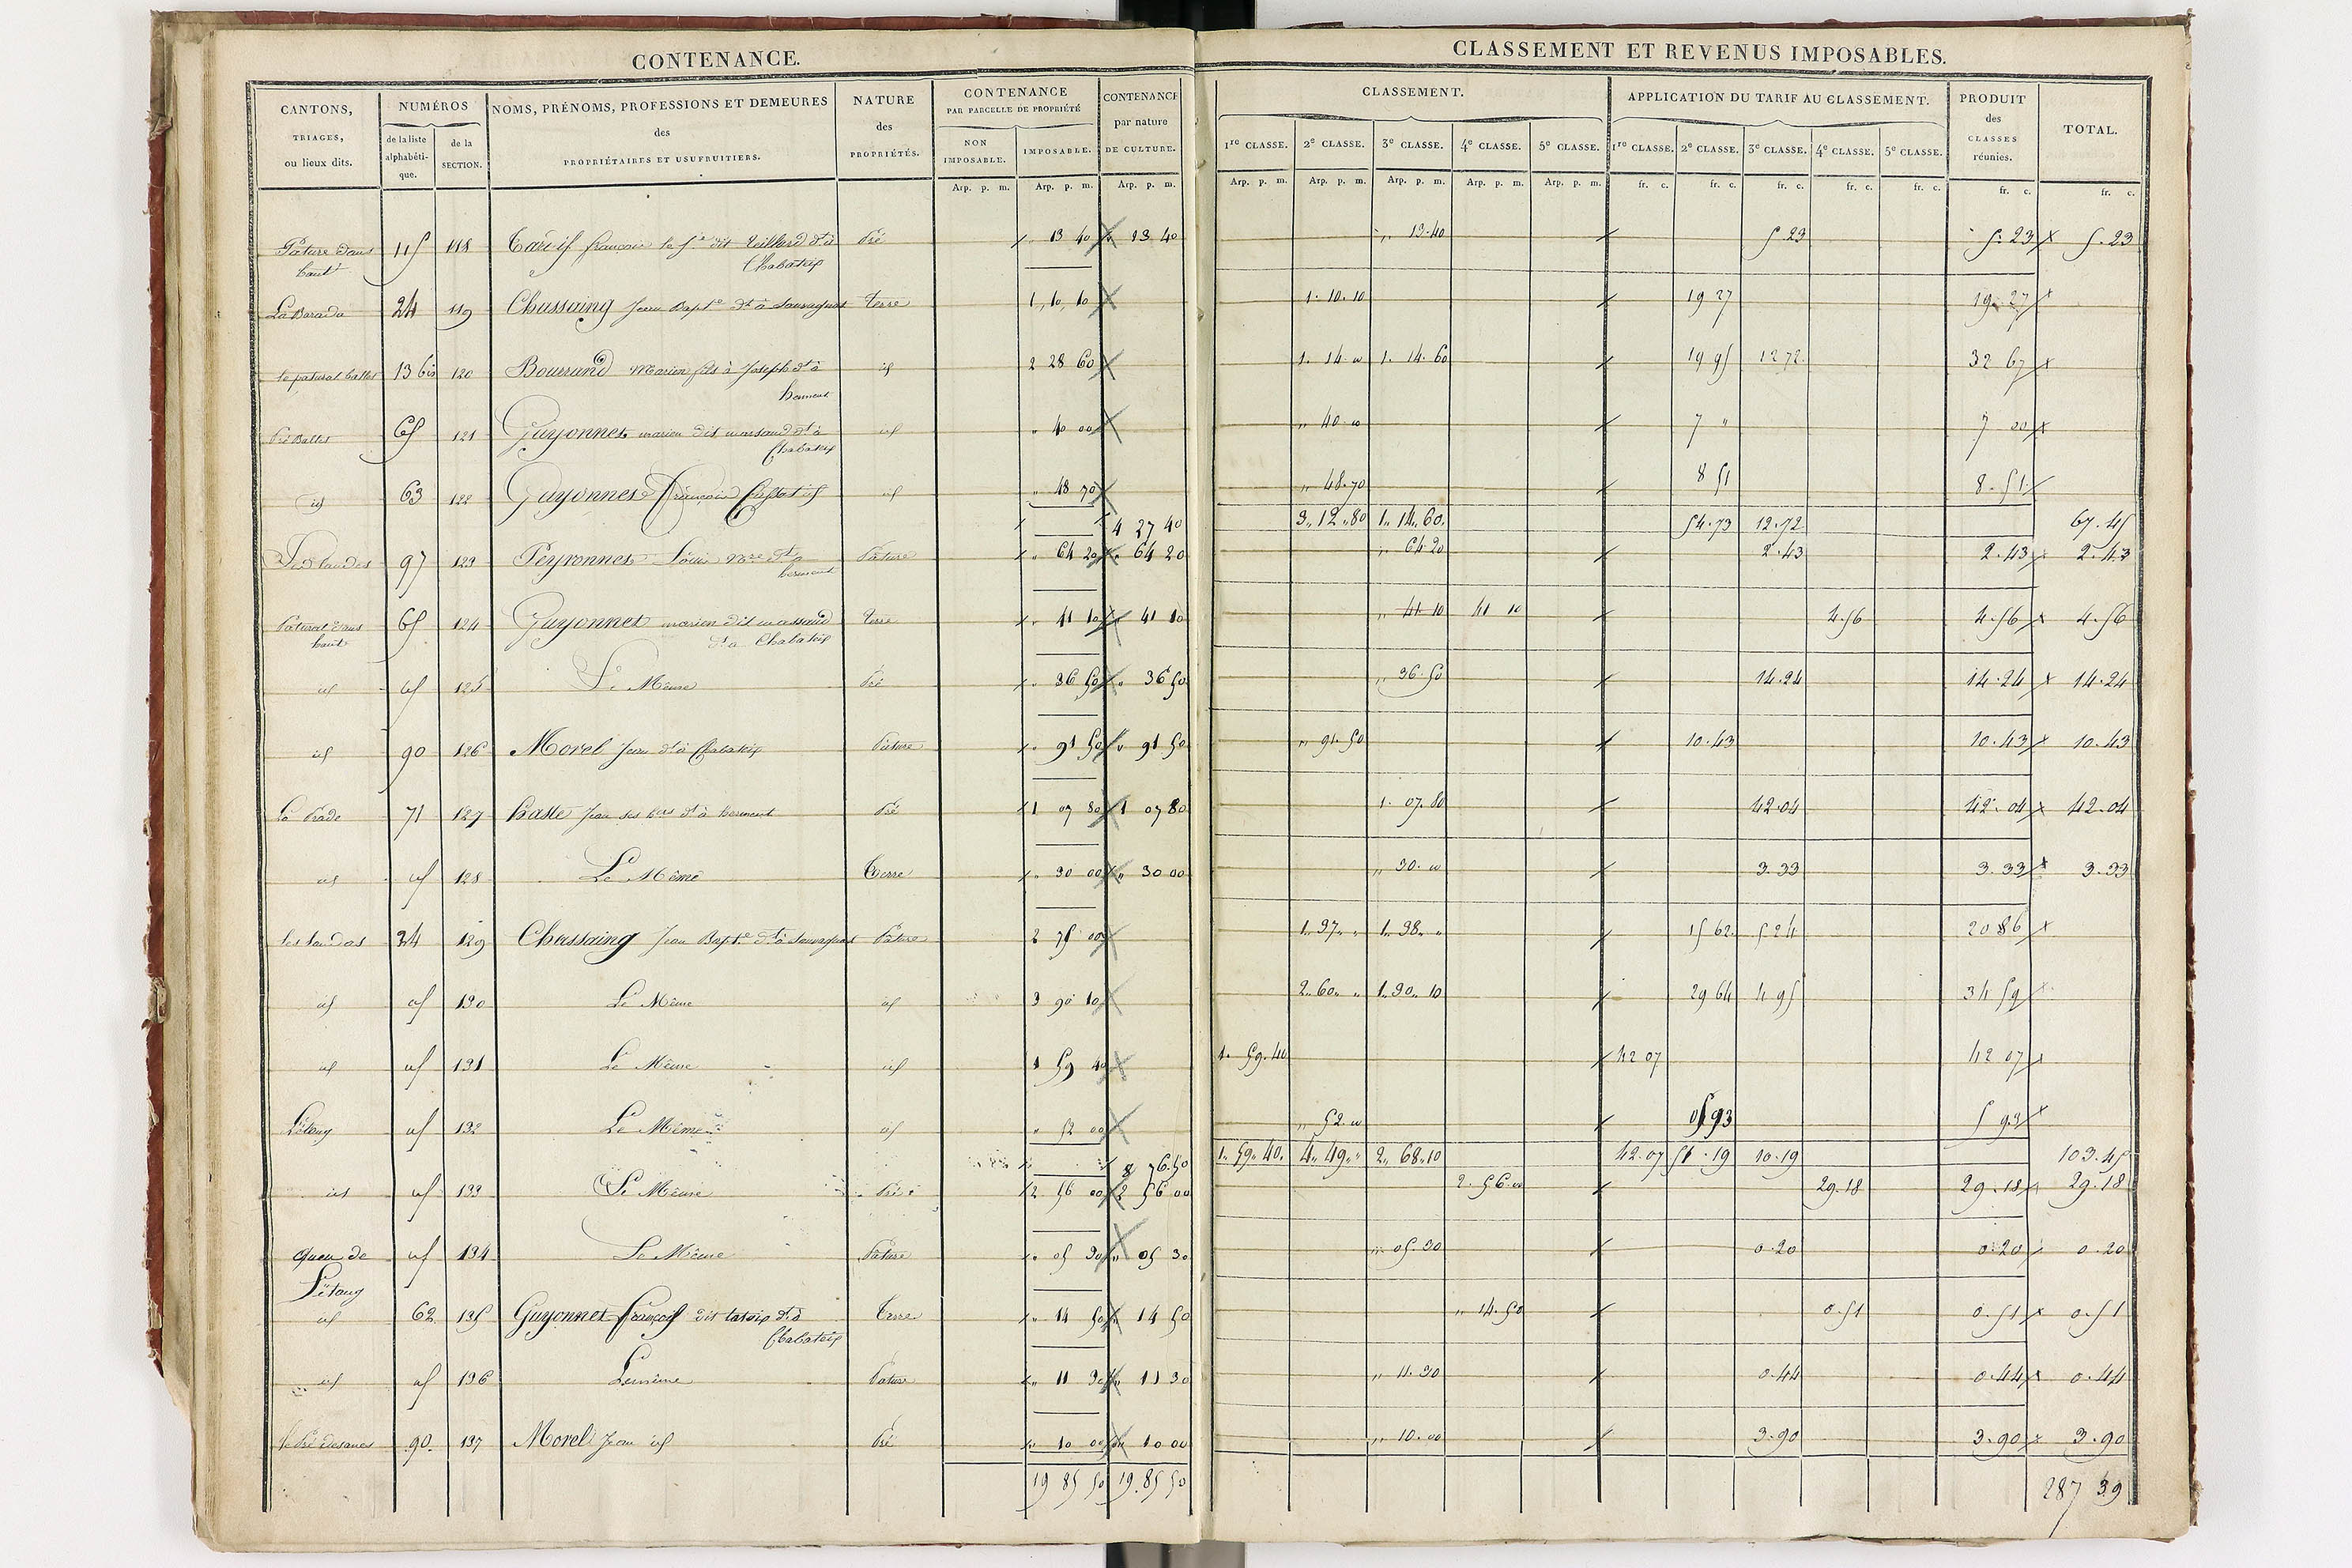 CONTENANCE.
CANTONS, TRIAGES, ou lieux dits.
NUMÉROS
de la liste alphabéti-que.
de la SECTION.
NOMS, PRÉNOMS, PROFESSIONS ET DEMEURES
des
PROPRIÉTAIRES ET USUFRUITIERS.
NATURE des PROPRIÉTÉS.
CONTENANCE
PAR PARCELLE DE PROPRIÉTÉ
NON IMPOSABLE.
IMPOSABLE.
CONTENANCE par nature DE CULTURE.
Arp. p. m. Arp. p. m. Arp. p. m.
CLASSEMENT ET REVENUS IMPOSABLES.
CLASSEMENT.
1re CLASSE. 2e CLASSE. 3e CLASSE. 4e CLASSE. 5e CLASSE.
APPLICATION DU TARIF AU CLASSEMENT.
1re CLASSE. 2e CLASSE. 3e CLASSE. 4e CLASSE. 5e CLASSE.
PRODUIT des CLASSES réunies.
TOTAL.
Arp. p. m. Arp. p. m. Arp. p. m. Arp. p. m. Arp. p. m. fr. c. fr. c. fr. c. fr. c. fr. c. fr. c. fr. c.
Pature dans 115 118 françois dit dt à Pré 13 40 13 40 13.40 5.23 5.23 5.23
haut Chabateix
La Barada 24 119 Chassaing Jean Bapte dt à Sauvagnat Terre 1 10 10 1.10.10 19 27 19.27
le patural ballet 13 bis 120 Marien fils à Joseph dt à id 2 28 60 1.14.00 1.14.60 19 95 12 72 32 67
herment
Pré Ballet 65 121 Guyonnet marien dit dt à id 40 00 40.00 7 " 7 00
Chabateix
id 63 122 Guyonnet François id 48 70 48.70 8 51 8.51
4 27 40 3.12.80 1.14.60 54.73 12.72 67.45
97 123 Peyronnet Louis dt à Pature 64 20 64 20 64 20 2.43 2.43 2.43
herment
Patural dans 65 124 Guyonnet marien dit Terre 41 10 41 10 41 10 41 10 4.56 4.56 4.56
haut dt à Chabateix
id id 125 Le Même Pré 36 50 36 50 36.50 14.24 14.24 14.24
id 90 126 Morel Jean dt à Chabateix Pature 91 50 91 50 91.50 10.43 10.43 10.43
La Prade 71 127 Jean ses hers dt à herment Pré 1 07 80 1 07 80 1.07.80 42.04 42.04 42.04
id id 128 Le Même Terre 30 00 30 00 30.00 3.33 3.33 3.33
les landas 24 129 Chassaing Jean Bapte dt à Sauvagnat Pature 2 75 00 1.37. " 1.38. " 15 62 5 24 20 86
id id 130 Le Même id 3 90 10 2.60. " 1.30.10 29 64 4 95 34 59
id id 131 Le Même id 1 59 40 1.59.40 42 07 42 07
L'étang id 132 Le Même id 52 00 52.00 5 93 5 93
8 76.50 1.59.40 4.49. " 2.68.10 42.07 51.19 10.19 103.45
id id 133 Le Même Pré 2 56 00 2 56 00 2.56.00 29.18 29.18 29.18
queu de id 134 Le Même Pature 05 30 05 30 05.30 0.20 0.20 0.20
L'étang
id 62 135 Guyonnet françois dit dt à Terre 14 50 14 50 14.50 0.51 0.51 0.51
Chabateix
id id 136 Lemême Pature 11 30 11 30 11.30 0.44 0.44 0.44
90 137 Morel Jean id Pré 10 00 10 00 10.00 3.90 3.90 3.90
19 85 50 19.85 50 287 39